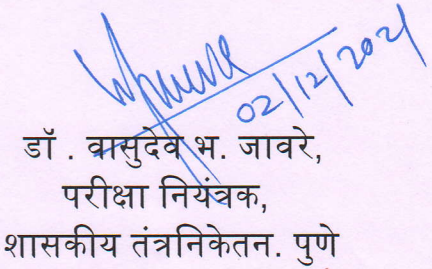 02/12/2021
डॉ . वासुदेव भ. जावरे,
परीक्षा नियंत्रक,
शासकीय तंत्रनिकेतन. पुणे